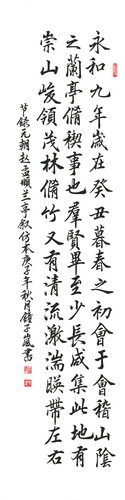 永和九年歲在癸丑暮春之初會于會稽山陰
之蘭亭脩禊事也羣賢畢至少長咸集此地有
崇山峻領茂林脩竹又有清流激湍暎帶左右
节錄元朝赵孟頫兰亭叙仿本庚子年秋月鐘子書